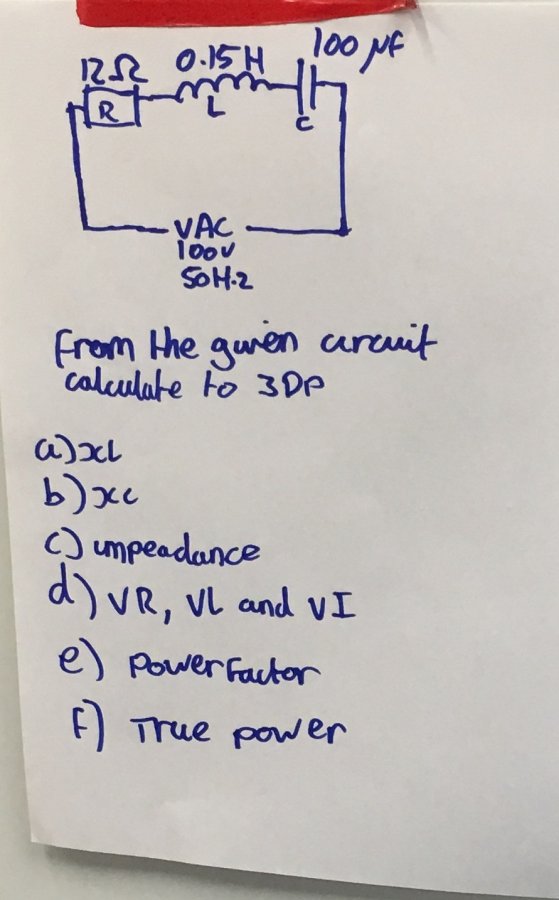 100 µF
12Ω 0.15H
R L C
VAC
100V
50H.2
From the given circuit
calculate to 3DP
a) xL
b) xc
c) impeadance
d) VR, VL and VI
e) Powerfactor
F) True power